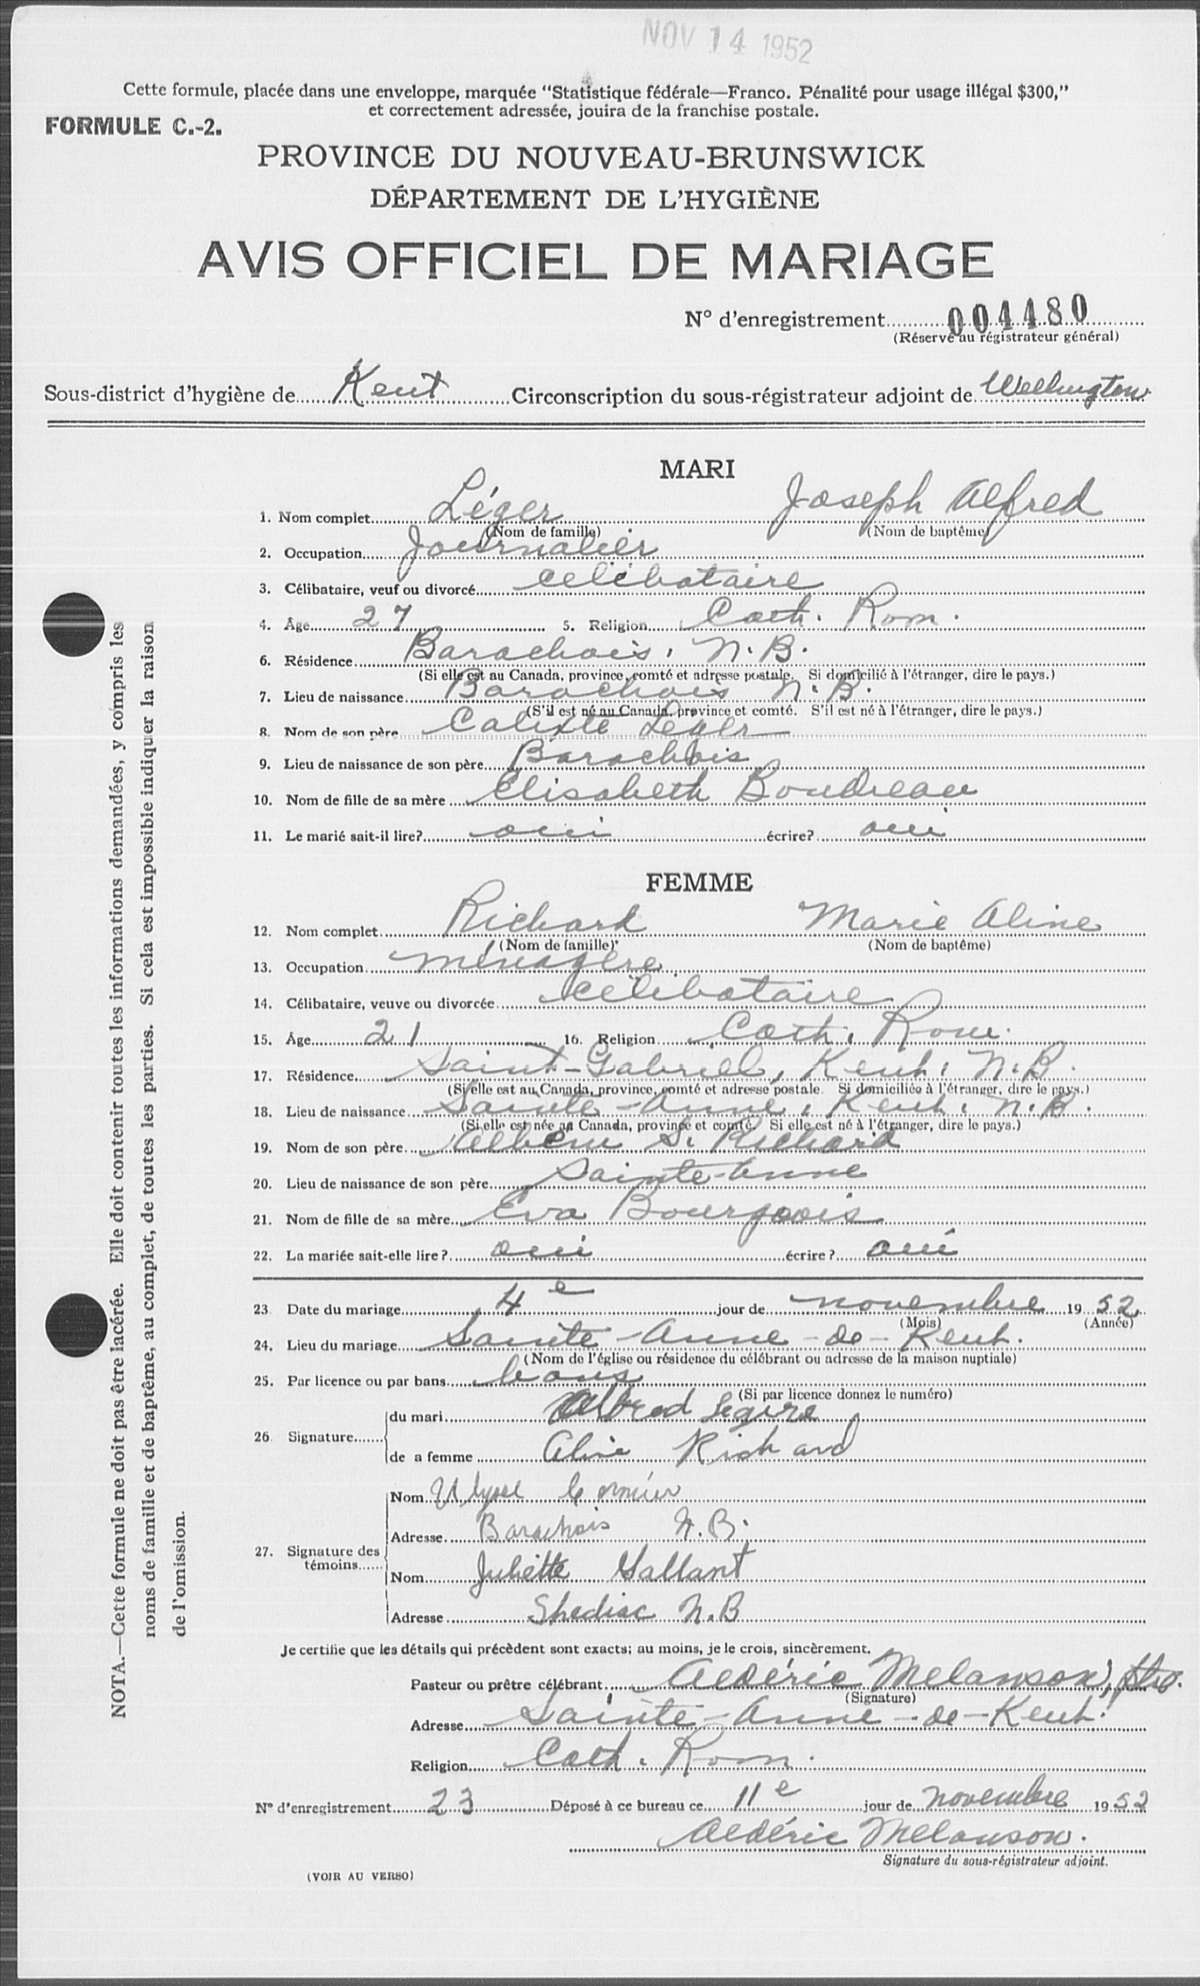 NOV 14 1952
Cette formule, placée dans une enveloppe, marquée "Statistique fédérale—Franco. Pénalité pour usage illégal $300,"
et correctement adressée, jouira de la franchise postale.
FORMULE C.-2.
PROVINCE DU NOUVEAU-BRUNSWICK
DÉPARTEMENT DE L'HYGIÈNE
AVIS OFFICIEL DE MARIAGE
N° d'enregistrement 004480
(Réservé au régistrateur général)
Sous-district d'hygiène de Kent Circonscription du sous-régistrateur adjoint de Wellington
MARI
1. Nom complet Léger Joseph Alfred
(Nom de famille) (Nom de baptême)
2. Occupation Journalier
3. Célibataire, veuf ou divorcé célibataire
4. Âge 27 5. Religion Cath. Rom.
6. Résidence Barachois, N.B.
(Si elle est au Canada, province, comté et adresse postale. Si domicilié à l'étranger, dire le pays.)
7. Lieu de naissance Barachois N.B.
(S'il est né au Canada, province et comté. S'il est né à l'étranger, dire le pays.)
8. Nom de son père Calixte Léger
9. Lieu de naissance de son père Barachois
10. Nom de fille de sa mère Elisabeth Boudreau
11. Le marié sait-il lire? oui écrire? oui
FEMME
12. Nom complet Richard Marie Aline
(Nom de famille) (Nom de baptême)
13. Occupation ménagère
14. Célibataire, veuve ou divorcée célibataire
15. Âge 21 16. Religion Cath. Rom.
17. Résidence Saint-Gabriel, Kent, N.B.
(Si elle est au Canada, province, comté et adresse postale. Si domiciliée à l'étranger, dire le pays.)
18. Lieu de naissance Sainte-Anne, Kent, N.B.
(Si elle est née au Canada, province et comté. Si elle est né à l'étranger, dire le pays.)
19. Nom de son père S. Richard
20. Lieu de naissance de son père Sainte-Anne
21. Nom de fille de sa mère Eva Bourgeois
22. La mariée sait-elle lire? oui écrire? oui
23 Date du mariage 4e jour de novembre 1952
(Mois) (Année)
24. Lieu du mariage Sainte-Anne-de-Kent.
(Nom de l'église ou résidence du célébrant ou adresse de la maison nuptiale)
25. Par licence ou par bans bans
(Si par licence donnez le numéro)
du mari Alfred Legere
26 Signature
de a femme Aline Richard
Nom Ulysse Cormier
Adresse Barachois N.B.
27. Signature des témoins
Nom Juliette Gallant
Adresse Shediac N.B
Je certifie que les détails qui précèdent sont exacts; au moins, je le crois, sincèrement.
Pasteur ou prêtre célébrant Aldéric Melanson, ptre.
(Signature)
Adresse Sainte-Anne-de-Kent.
Religion Cath. Rom.
N° d'enregistrement 23 Déposé à ce bureau ce 11e jour de novembre 1952
Aldéric Melanson.
Signature du sous-régistrateur adjoint.
(VOIR AU VERSO)
NOTA.—Cette formule ne doit pas être lacérée. Elle doit contenir toutes les informations demandées, y compris les
noms de famille et de baptême, au complet, de toutes les parties. Si cela est impossible indiquer la raison
de l'omission.